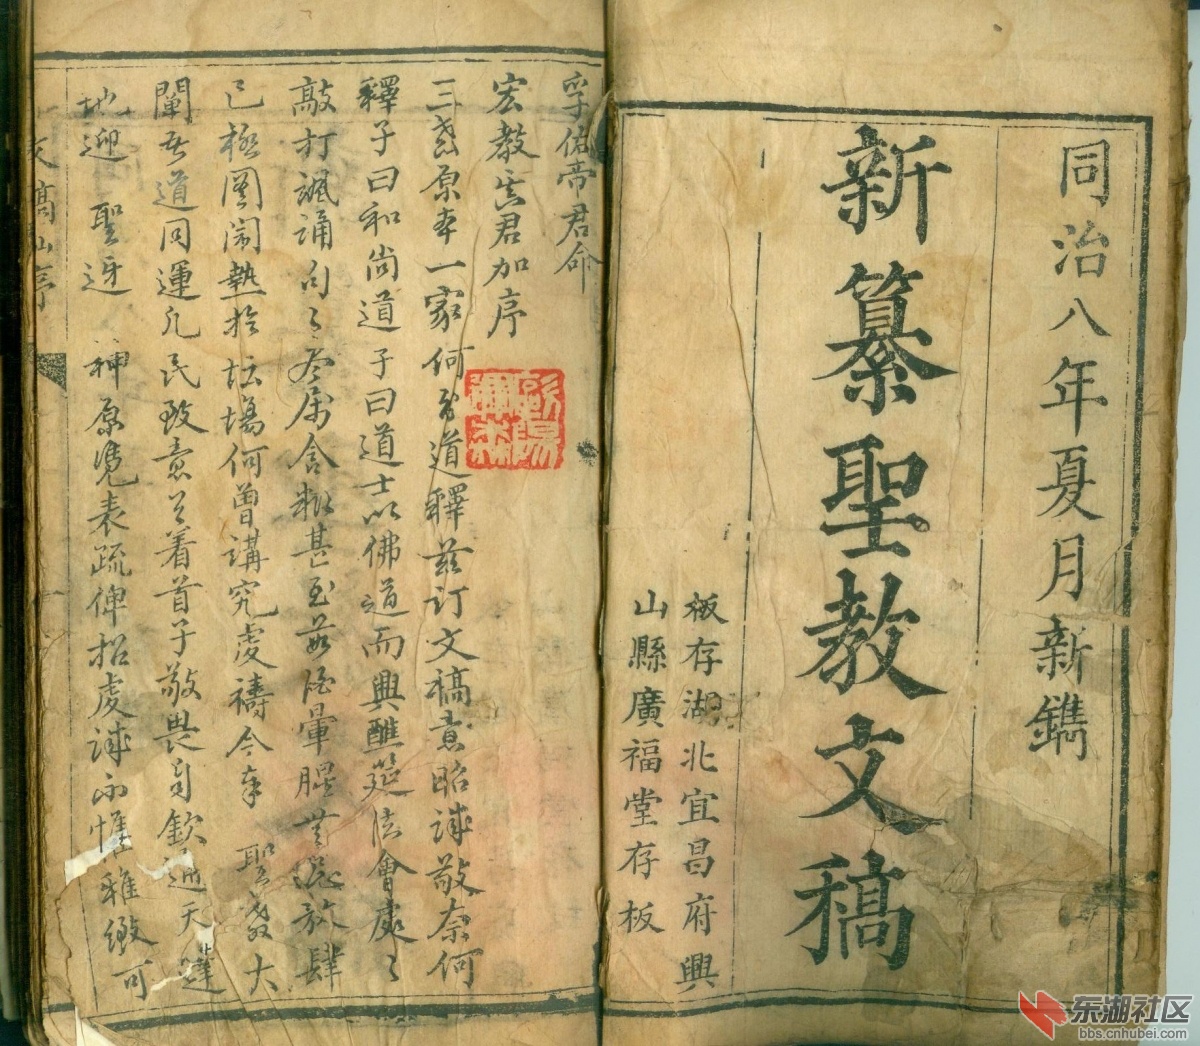 同治八年夏月新鐫
新纂聖教文稿
板存湖北宜昌府興
山縣廣福堂存板
孚佑帝君命
宏教真君加序
三教原本一家何分道釋茲訂文稿意昭誠敬奈何
釋子曰和尚道子曰道士以佛道而興醮筵法會處々
敲打諷誦句々

尽属含糊甚至葷腥
放肆
已極圖鬧熱於坛場何曾講究虔禱今幸
聖教大
闡吾道同運凡民致意
着首于敬畏自欽通天達
地迎
聖迓
神原憑表疏俾招虔誠不惟雅緻可
文稿
序
东湖社区
bbs.cnhubei.com